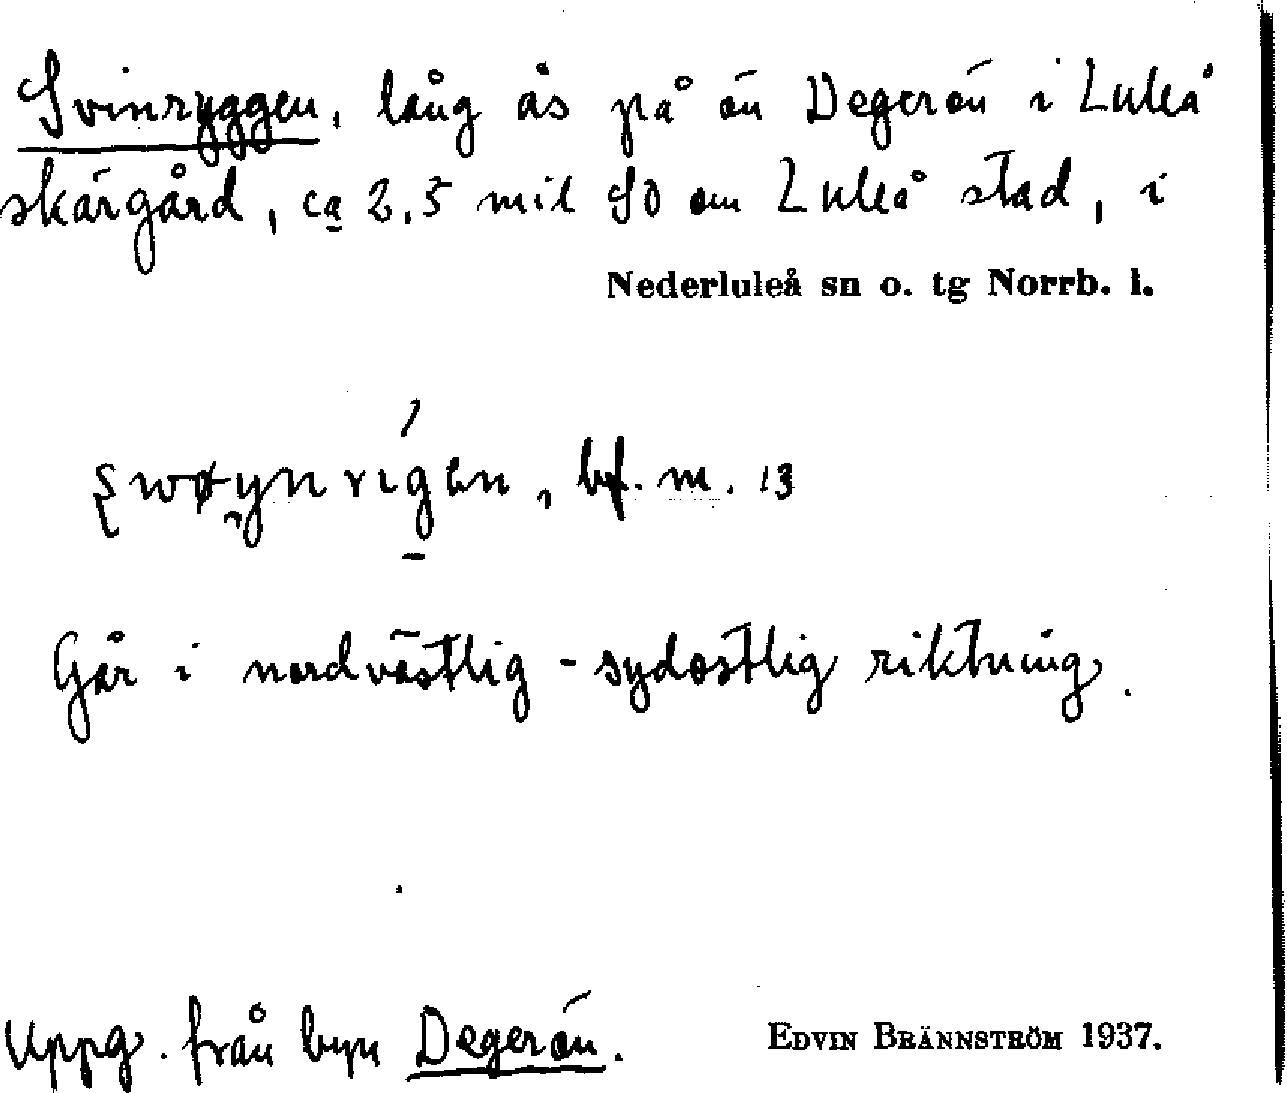 Svinryggen, lång ås på ön Degerön i Luleå
skärgård, ca 2,5 mil SO om Luleå stad, i
Nederluleå sn o. tg Norrb. l.
bf. m. 13
Går i nordvästlig - sydostlig riktning.
Uppg. från byn Degerön.
EDVIN BRÄNNSTRÖM 1937.